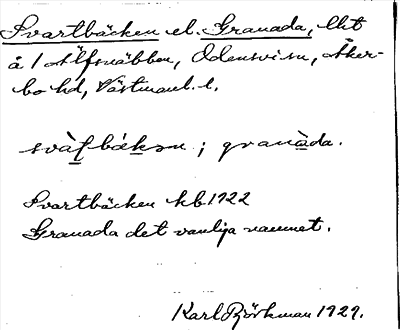 Svartbäcken el. Granada, lht
å 1 Älfsnäbben, Odensvi sn, Åker-
bo hd, Västmanl. l.
svàʈ bǻkǝn ; granàda.
Svartbäcken kb 1922
Granada det vanliga namnet.
Karl Björkman 1929.